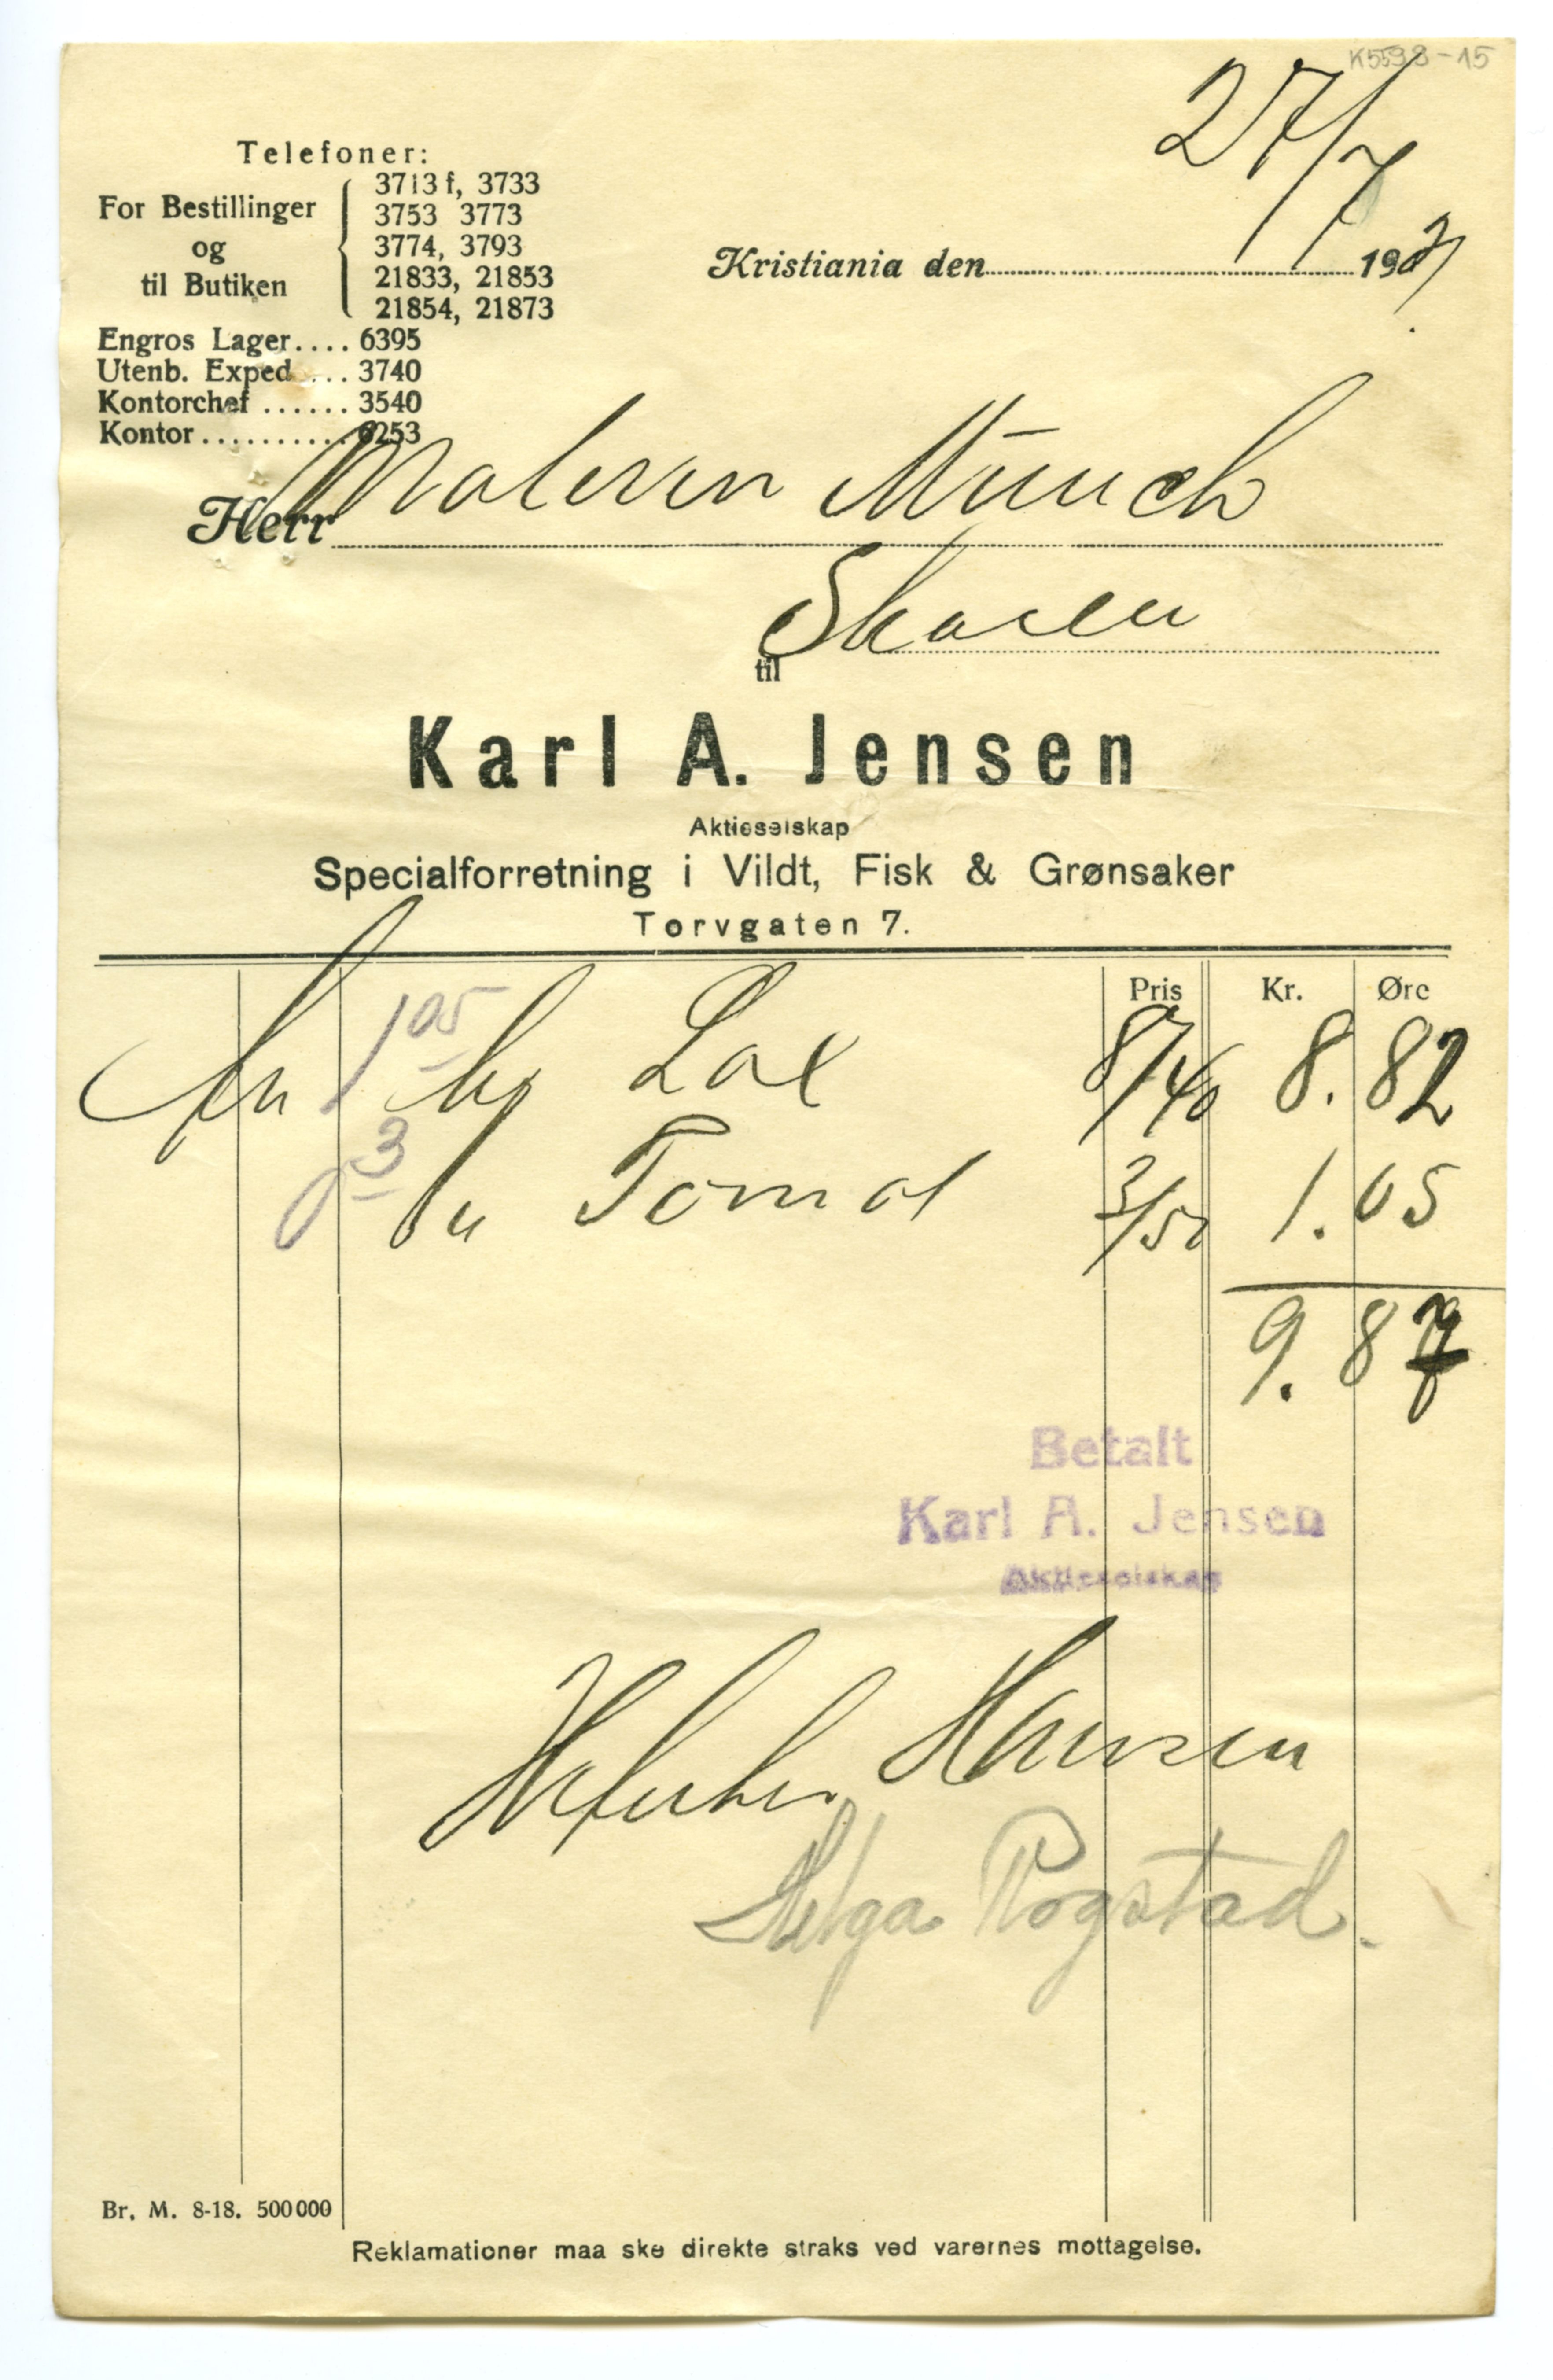 K5593-15
27/7
Telefoner:
For Bestillinger
og
til Butiken
3713 f, 3733
3753 3773
3774, 3793
21833, 21853
21854, 21873
Engros Lager.... 6395
Utenb. Exped ... 3740
Kontorchef ...... 3540
Kontor.......... 6253
Kristiania den 192
Herr Maleren Munch
Skøien
til
Karl A. Jensen
Aktieselskap
Specialforretning i Vildt, Fisk & Grønsaker
Torvgaten 7.
Pris Kr. Øre
An 1 05 kg Lax 8/40 8. 82
0 3 Tomat 3/50 1. 05
9. 87
Betalt
Karl A. Jensen
Aktieselskap
Hansen
Helga Rogstad.
Br. M. 8-18. 500000
Reklamationer maa ske direkte straks ved varernes mottagelse.